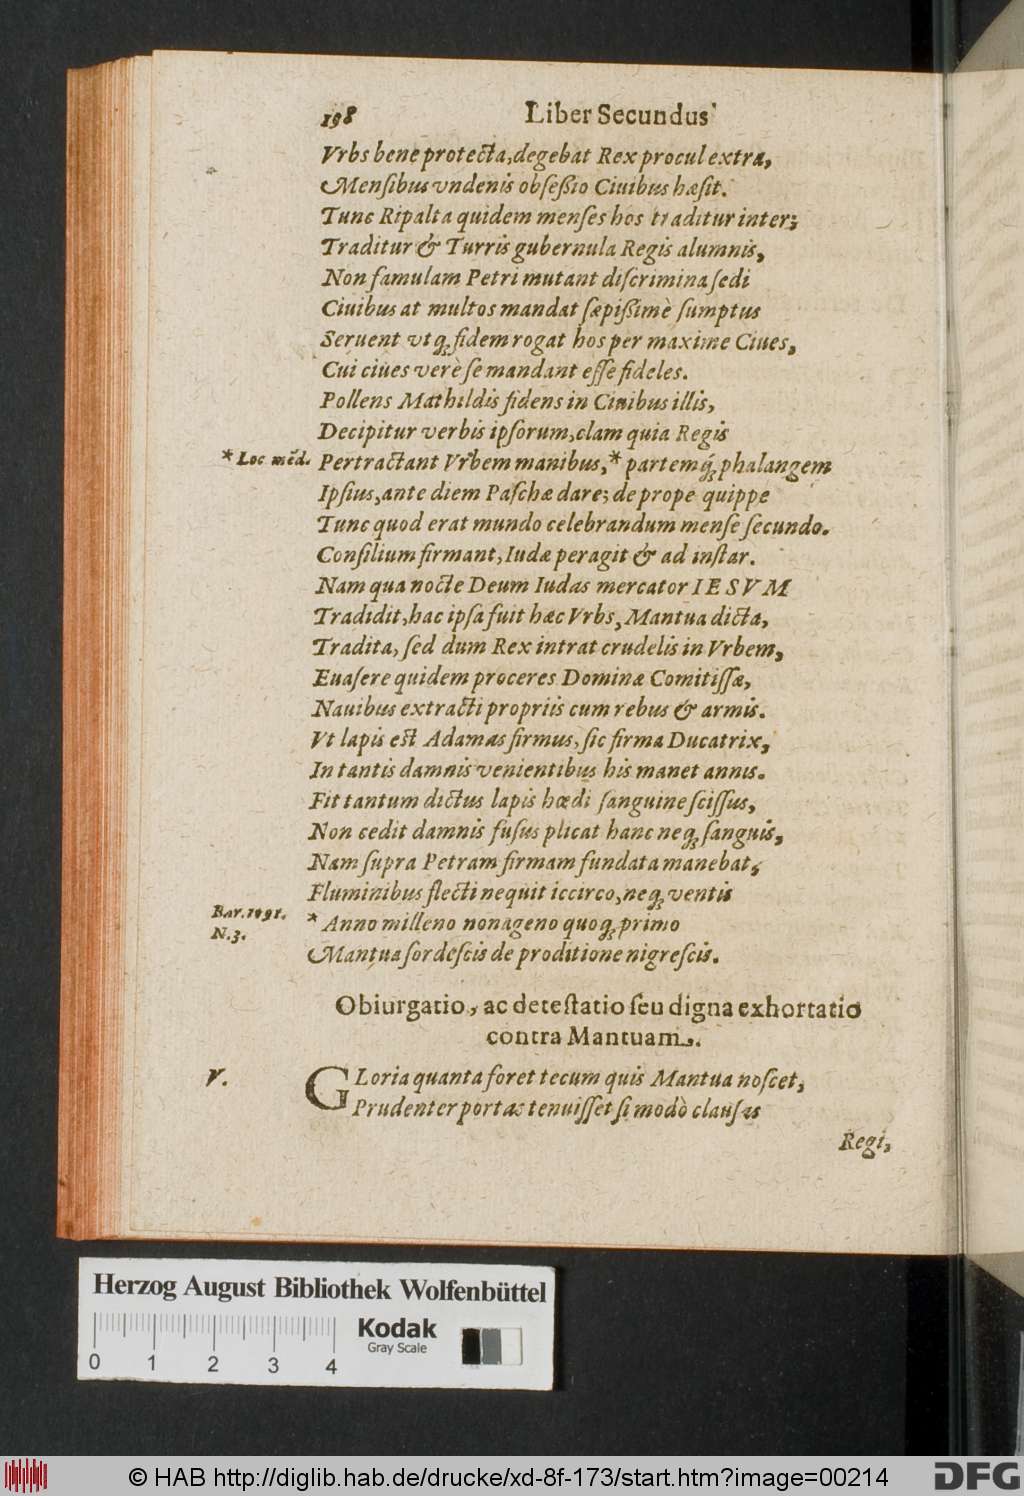 198 Liber Secundus
Vrbs bene protecta, degebat Rex procul extra,
Mensibus vndenis obseßio Ciuibus hæsit.
Tunc Ripalta quidem menses hos traditur inter;
Traditur & Turris gubernula Regis alumnis,
Non famulam Petri mutant discrimina sedi
Ciuibus at multos mandat sæpißimè sumptus
Seruent vtq; fidem rogat hos per maxime Ciues,
Cui ciues verè se mandant esse fideles.
Pollens Mathildis fidens in Ciuibus illis,
Decipitur verbis ipsorum, clam quia Regis
* Loc mẽd. Pertractant Vrbem manibus, * partemq́; phalangem
Ipsius, ante diem Paschæ dare; de prope quippe
Tunc quod erat mundo celebrandum mense secundo.
Consilium firmant, Iudæ peragit & ad instar.
Nam qua nocte Deum Iudas mercator IESVM
Tradidit, hac ipsa fuit hæc Vrbs, Mantua dicta,
Tradita, sed dum Rex intrat crudelis in Vrbem,
Euasere quidem proceres Dominæ Comitissæ,
Nauibus extracti propriis cum rebus & armis.
Vt lapis est Adamas firmus, sic firma Ducatrix,
In tantis damnis venientibus his manet annis.
Fit tantum dictus lapis hœdi sanguine scissus,
Non cedit damnis fusus plicat hanc neq; sanguis,
Nam supra Petram firmam fundata manebat,
Fluminibus flecti nequit iccirco, neq; ventis
Bar. 1091.
N. 3.
* Anno milleno nonageno quoq; primo
Mantua sordescis de proditione nigrescis.
Obiurgatio, ac detestatio seu digna exhortatio
contra Mantuam.
V. GLoria quanta foret tecum quis Mantua noscet,
Prudenter portas tenuisset si modò clausas
Regi,
Herzog August Bibliothek Wolfenbüttel
Kodak
Gray Scale
0 1 2 3 4
© HAB http://diglib.hab.de/drucke/xd-8f-173/start.htm?image=00214
DFG